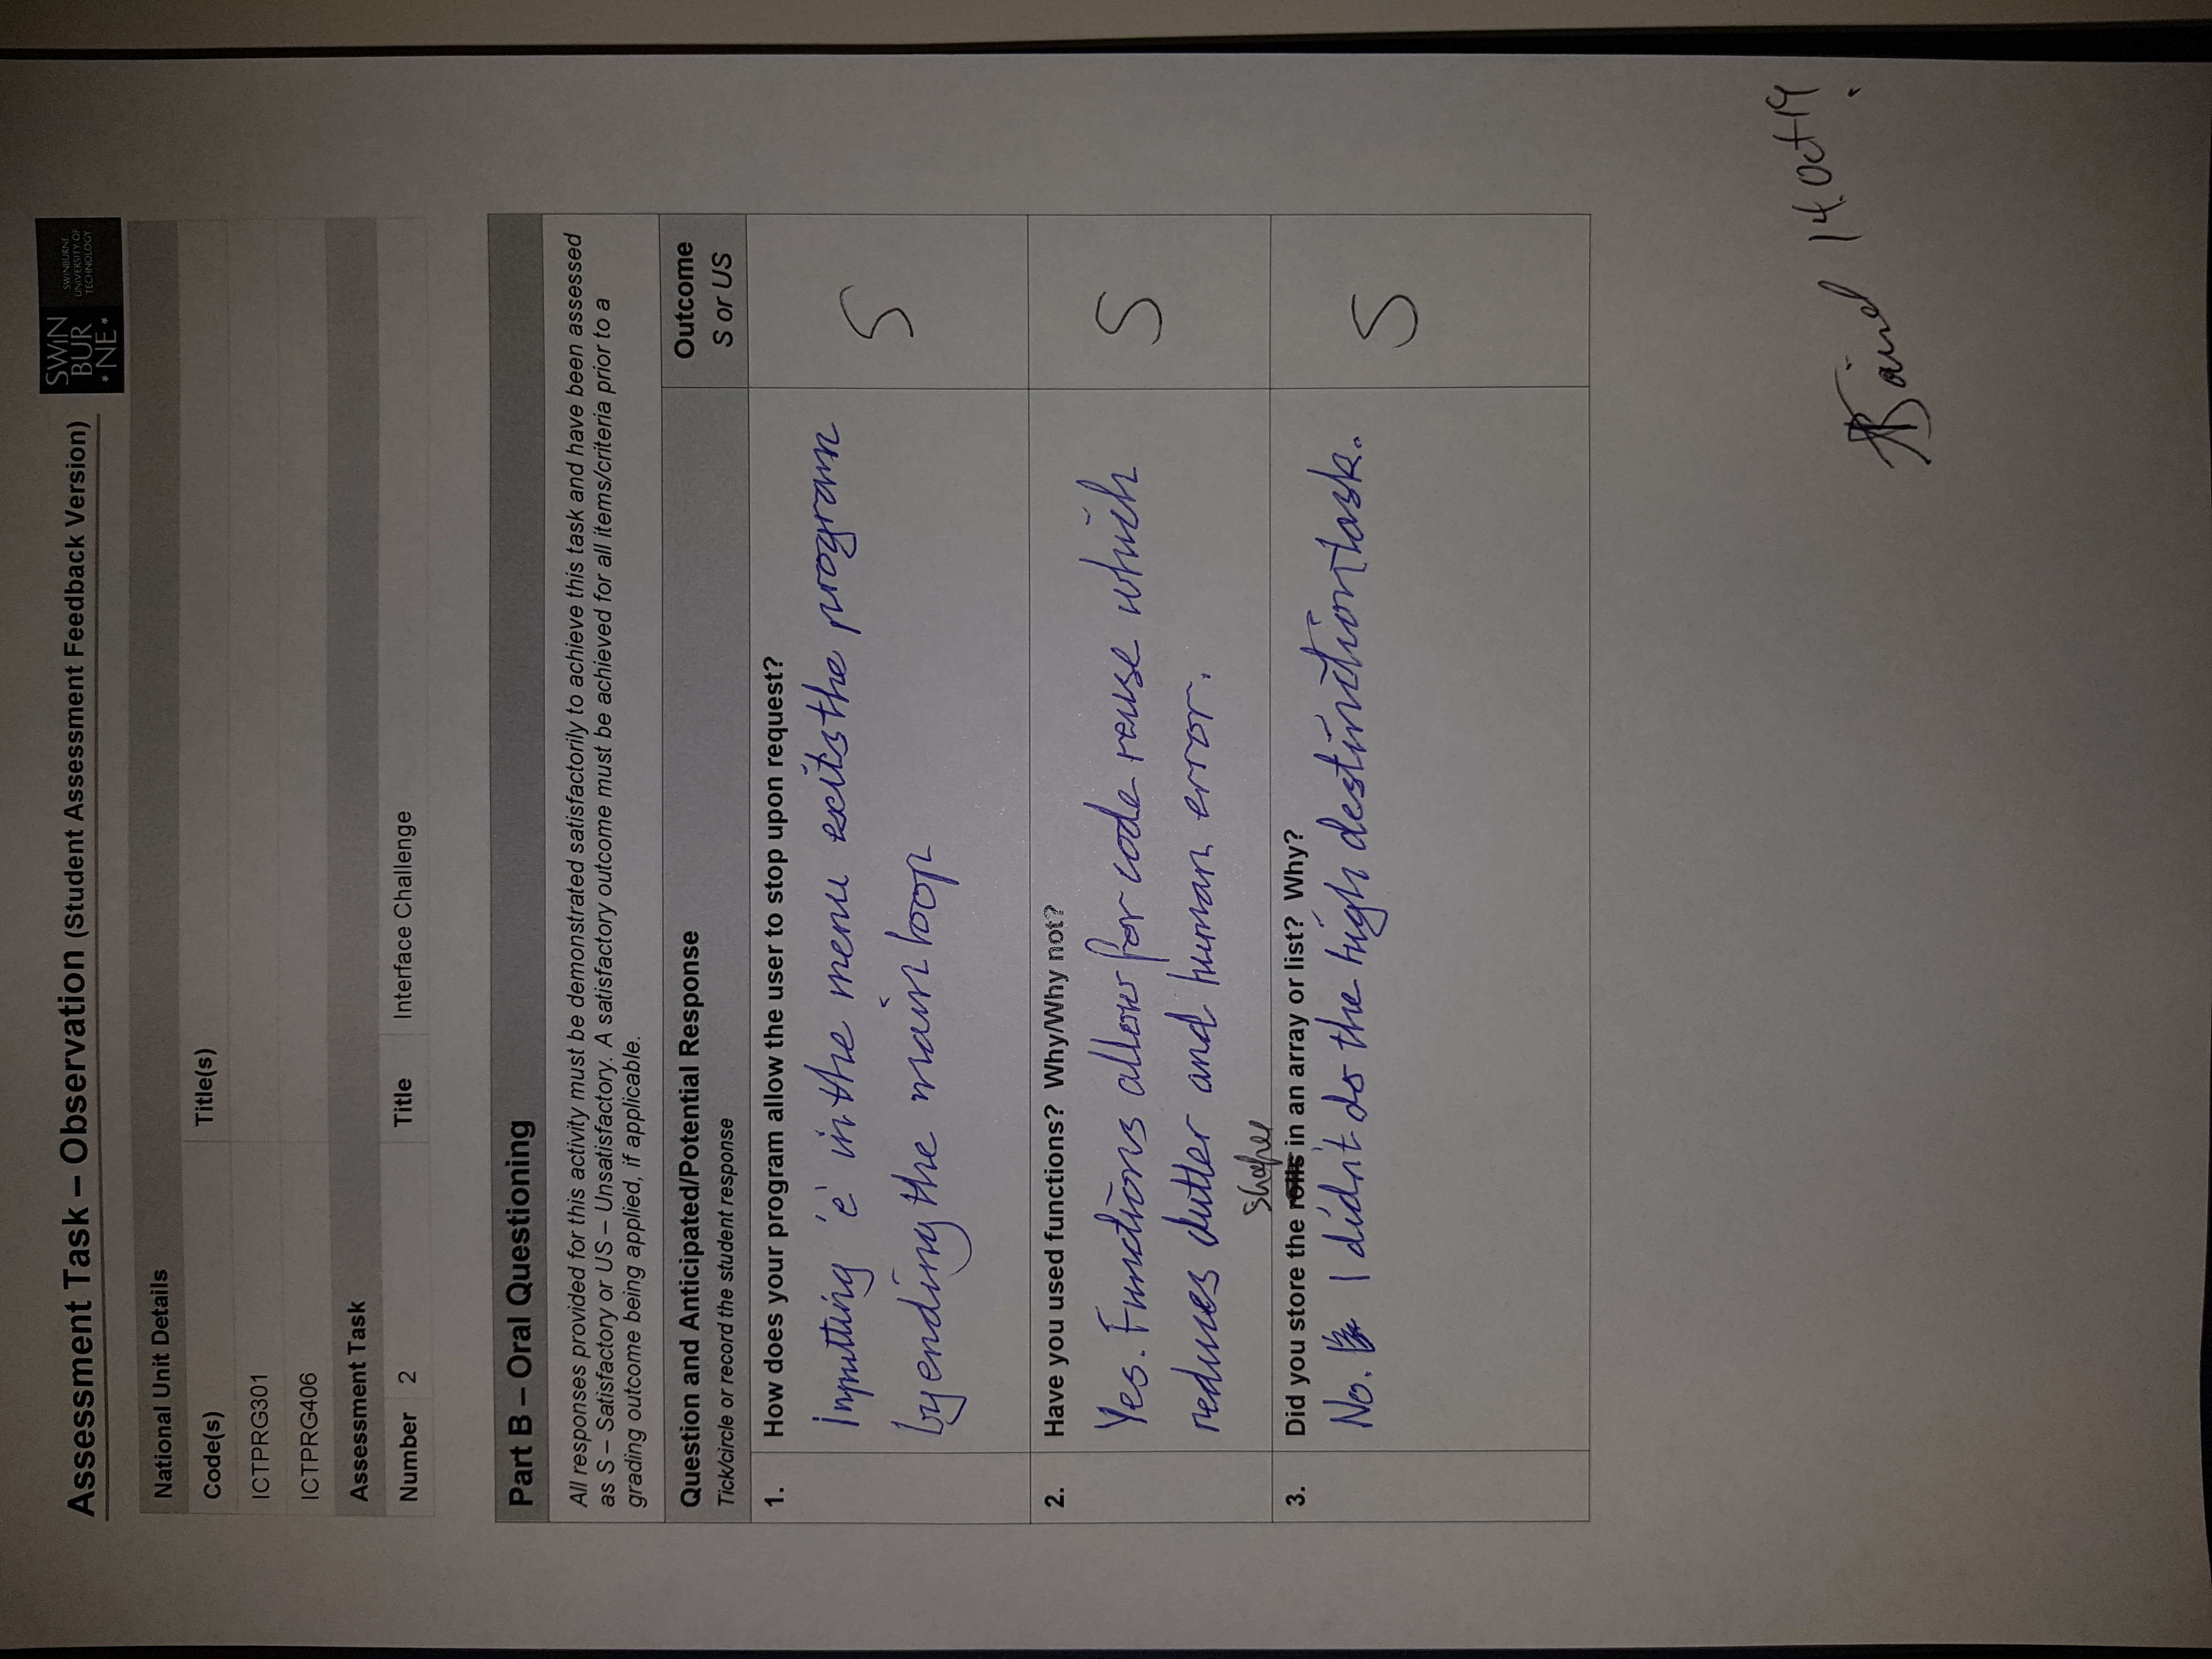 Assessment Task – Observation (Student Assessment Feedback Version)
SWIN
BUR
* NE *
SWINBURNE
UNIVERSITY OF
TECHNOLOGY
National Unit Details
Code(s) Title(s)
ICTPRG301
ICTPRG406
Assessment Task
Number 2 Title Interface Challenge
Part B – Oral Questioning
All responses provided for this activity must be demonstrated satisfactorily to achieve this task and have been assessed
as S – Satisfactory or US – Unsatisfactory. A satisfactory outcome must be achieved for all items/criteria prior to a
grading outcome being applied, if applicable.
Question and Anticipated/Potential Response Outcome
Tick/circle or record the student response S or US
1. How does your program allow the user to stop upon request?
Inputting 'e' in the menu exits the program
by ending the main loop
S
2. Have you used functions? Why/Why not?
Yes. Functions allow for code reuse which
reduces clutter and human error.
S
shapes
3. Did you store the rolls in an array or list? Why?
No. I didn't do the high destinction task.
S
Baird 14 Oct 19